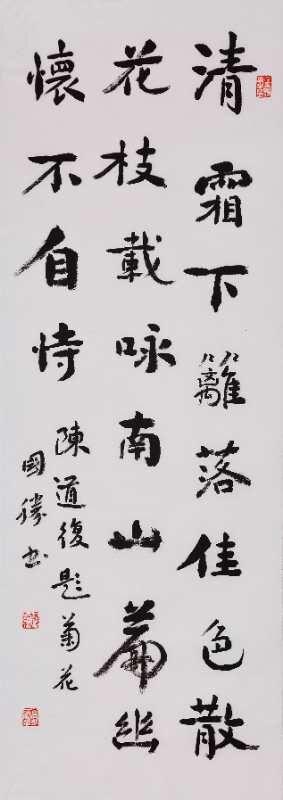 清霜下籬落佳色散
花枝載咏南山篇幽
懷不自恃
陳道復題菊花
國勝书